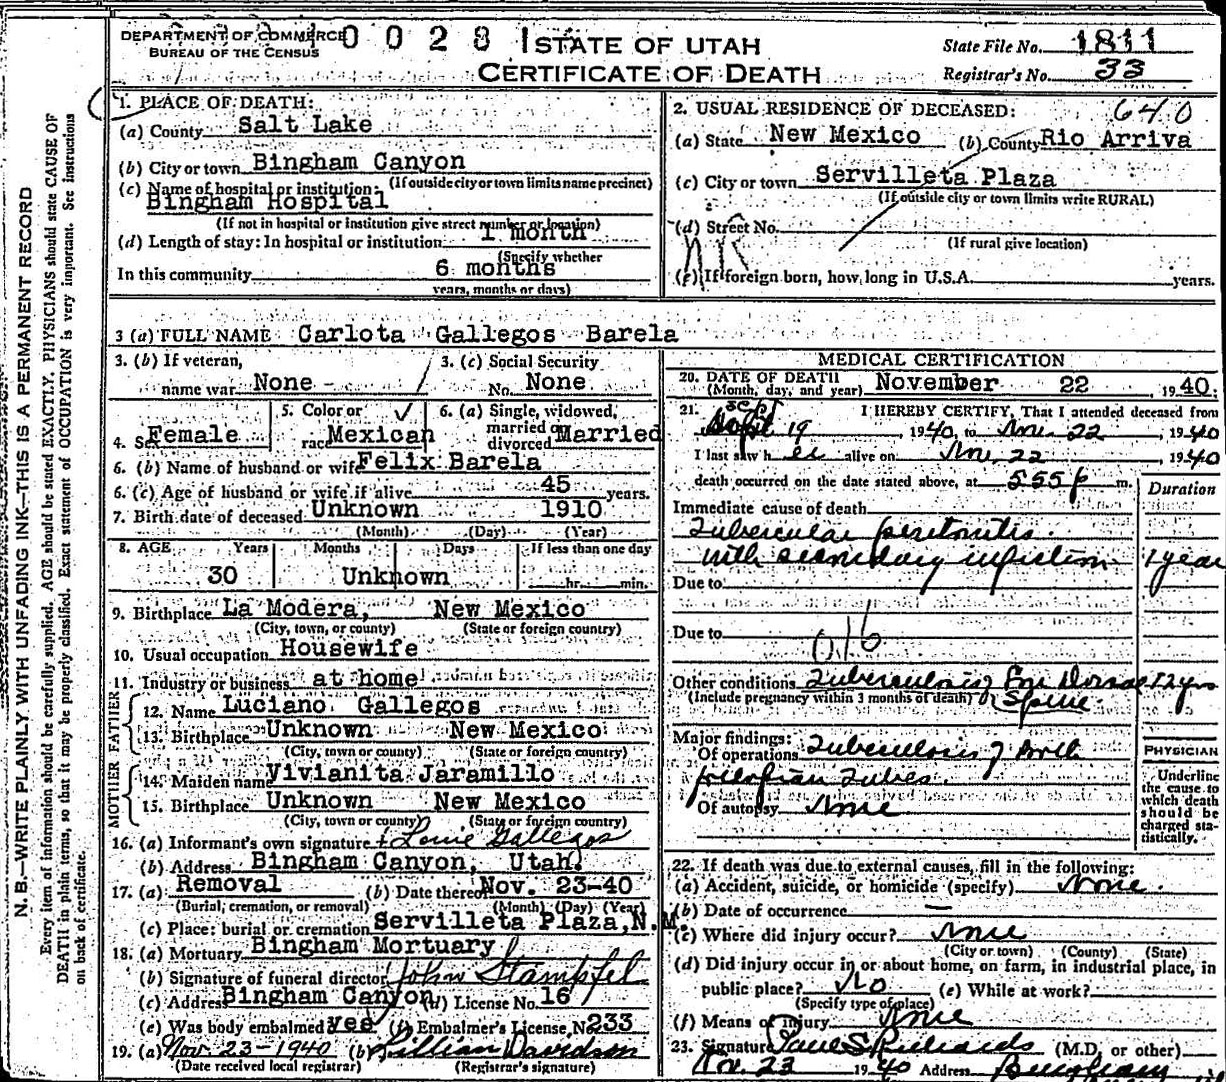 DEPARTMENT OF COMMERCE
BUREAU OF THE CENSUS
0 0 2 8
STATE OF UTAH
CERTIFICATE OF DEATH
State File No. 1811
Registrar's No. 33
N. B.—WRITE PLAINLY WITH UNFADING INK—THIS IS A PERMANENT RECORD
Every item of information should be carefully supplied. AGE should be stated EXACTLY. PHYSICIANS should state CAUSE OF
DEATH in plain terms, so that it may be properly classified. Exact statement of OCCUPATION is very important. See instructions
on back of certificate.
1. PLACE OF DEATH:
(a) County Salt Lake
(b) City or town Bingham Canyon
(If outside city or town limits name precinct)
(c) Name of hospital or institution:
Bingham Hospital
(If not in hospital or institution give street number or location)
(d) Length of stay: In hospital or institution 1 month
(Specify whether
In this community 6 months
years, months or days)
2. USUAL RESIDENCE OF DECEASED: 640
(a) State New Mexico (b) County Rio Arriva
(c) City or town Servilleta Plaza
(If outside city or town limits write RURAL)
(d) Street No.
(If rural give location)
(e) If foreign born, how long in U.S.A. years.
3 (a) FULL NAME Carlota Gallegos Barela
3. (b) If veteran, name war None
3. (c) Social Security No. None
4. Sex Female
5. Color or race Mexican
6. (a) Single, widowed, married or divorced Married
6. (b) Name of husband or wife Felix Barela
6. (c) Age of husband or wife if alive 45 years.
7. Birth date of deceased Unknown 1910
(Month) (Day) (Year)
8. AGE Years Months Days If less than one day
30 Unknown hr. min.
9. Birthplace La Modera, New Mexico
(City, town, or county) (State or foreign country)
10. Usual occupation Housewife
11. Industry or business at home
FATHER
12. Name Luciano Gallegos
13. Birthplace Unknown New Mexico
(City, town or county) (State or foreign country)
MOTHER
14. Maiden name Vivianita Jaramillo
15. Birthplace Unknown New Mexico
(City, town or county) (State or foreign country)
16. (a) Informant's own signature Louie Gallegos
(b) Address Bingham Canyon, Utah.
17. (a) Removal (b) Date thereof Nov. 23-40
(Burial, cremation, or removal) (Month) (Day) (Year)
(c) Place: burial or cremation Servilleta Plaza, N.M.
18. (a) Mortuary Bingham Mortuary
(b) Signature of funeral director John Stampfel
(c) Address Bingham Canyon (d) License No. 16
(e) Was body embalmed yes (f) Embalmer's License No. 233
19. (a) Nov. 23-1940 (b) Lillian Davidson
(Date received local registrar) (Registrar's signature)
MEDICAL CERTIFICATION
20. DATE OF DEATH
(Month, day, and year) November 22, 1940.
21. I HEREBY CERTIFY, That I attended deceased from
Sept 19, 1940, to Nov. 22, 1940
I last saw her alive on Nov 22, 1940
death occurred on the date stated above, at 555 p m.
Duration
Immediate cause of death
Tubercular peritonitis
with secondary infection 1 year
Due to
Due to
016
Other conditions Tuberculosis of Dorsal 12 yrs
(Include pregnancy within 3 months of death) Spine.
Major findings:
Of operations Tuberculosis of both
fallopian tubes.
Of autopsy None
PHYSICIAN
Underline
the cause to
which death
should be
charged sta-
tistically.
22. If death was due to external causes, fill in the following:
(a) Accident, suicide, or homicide (specify) None.
(b) Date of occurrence —
(c) Where did injury occur? None
(City or town) (County) (State)
(d) Did injury occur in or about home, on farm, in industrial place, in
public place? No (e) While at work?
(Specify type of place)
(f) Means of Injury None
23. Signature Paul S. Richards (M.D. or other)
Nov. 23 1940 Address Bingham